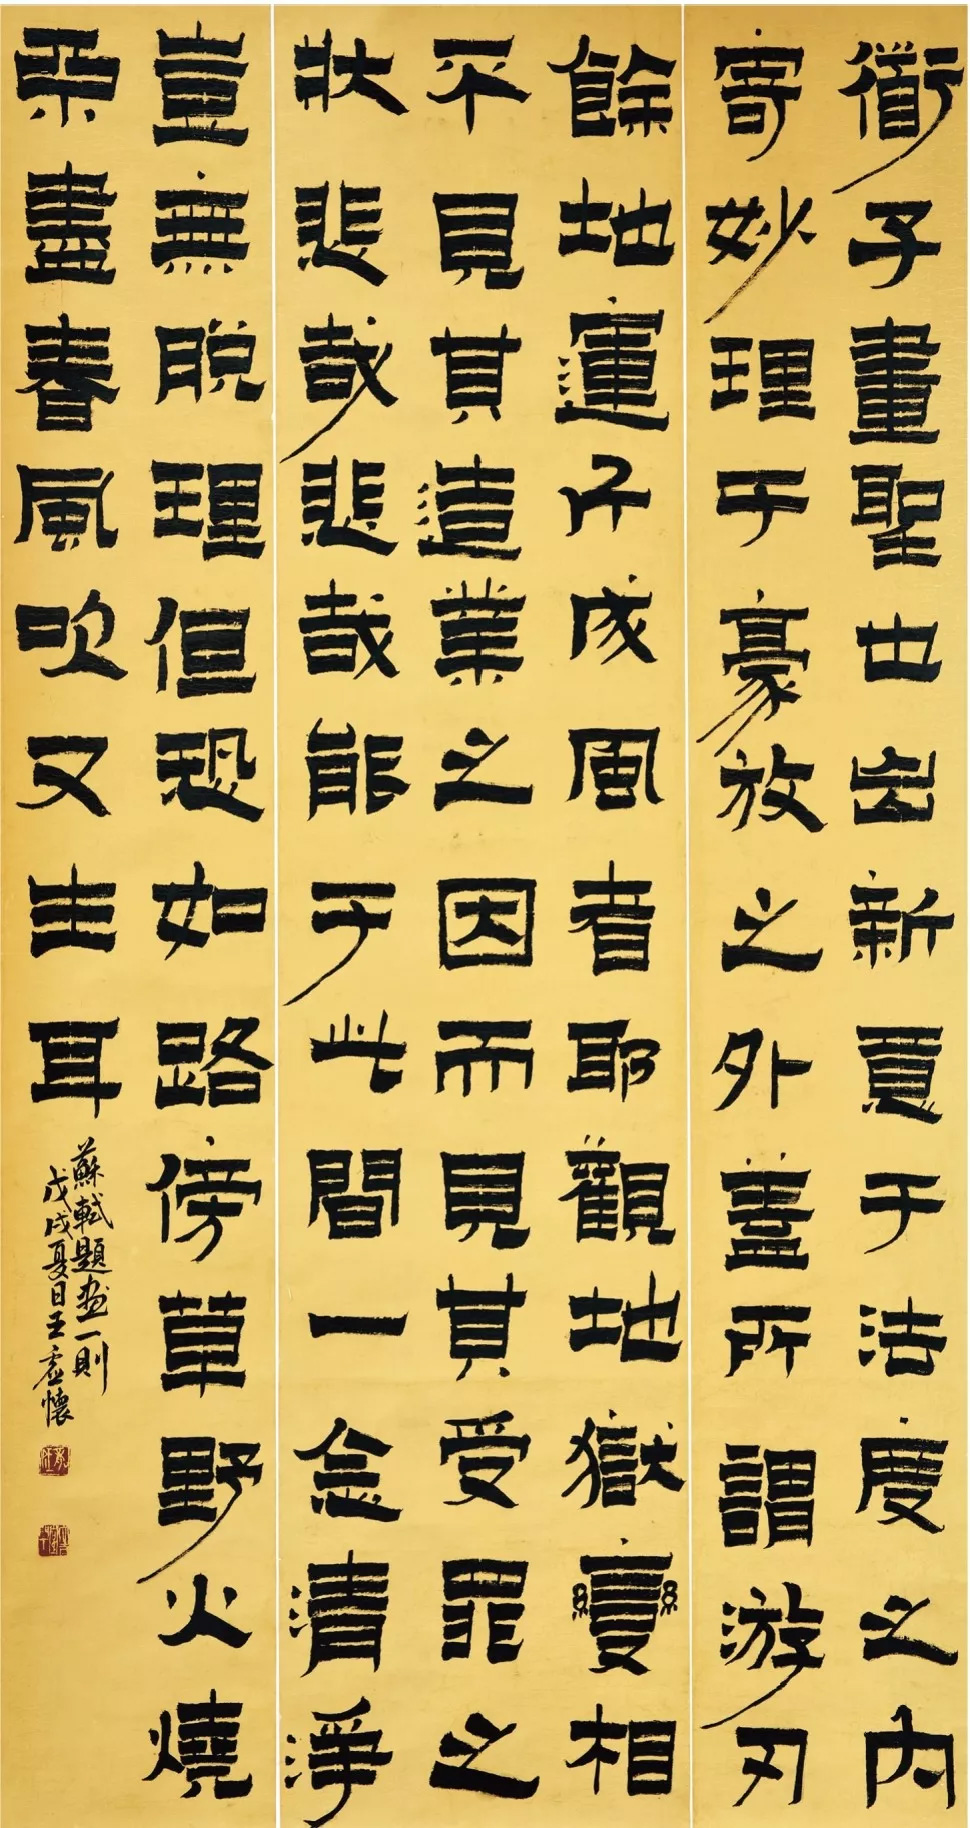 衜子畫聖也出新意于法度之内
寄妙理于豪放之外蓋所謂游刃
餘地運斤成風者耶觀地獄變相
不見其造業之因而見其受罪之
狀悲哉悲哉能于此間一念清淨
豈無脫理但恐如路傍草野火燒
不盡春風吹又生耳
蘇軾題畫一則
戊戌夏日王虛懷